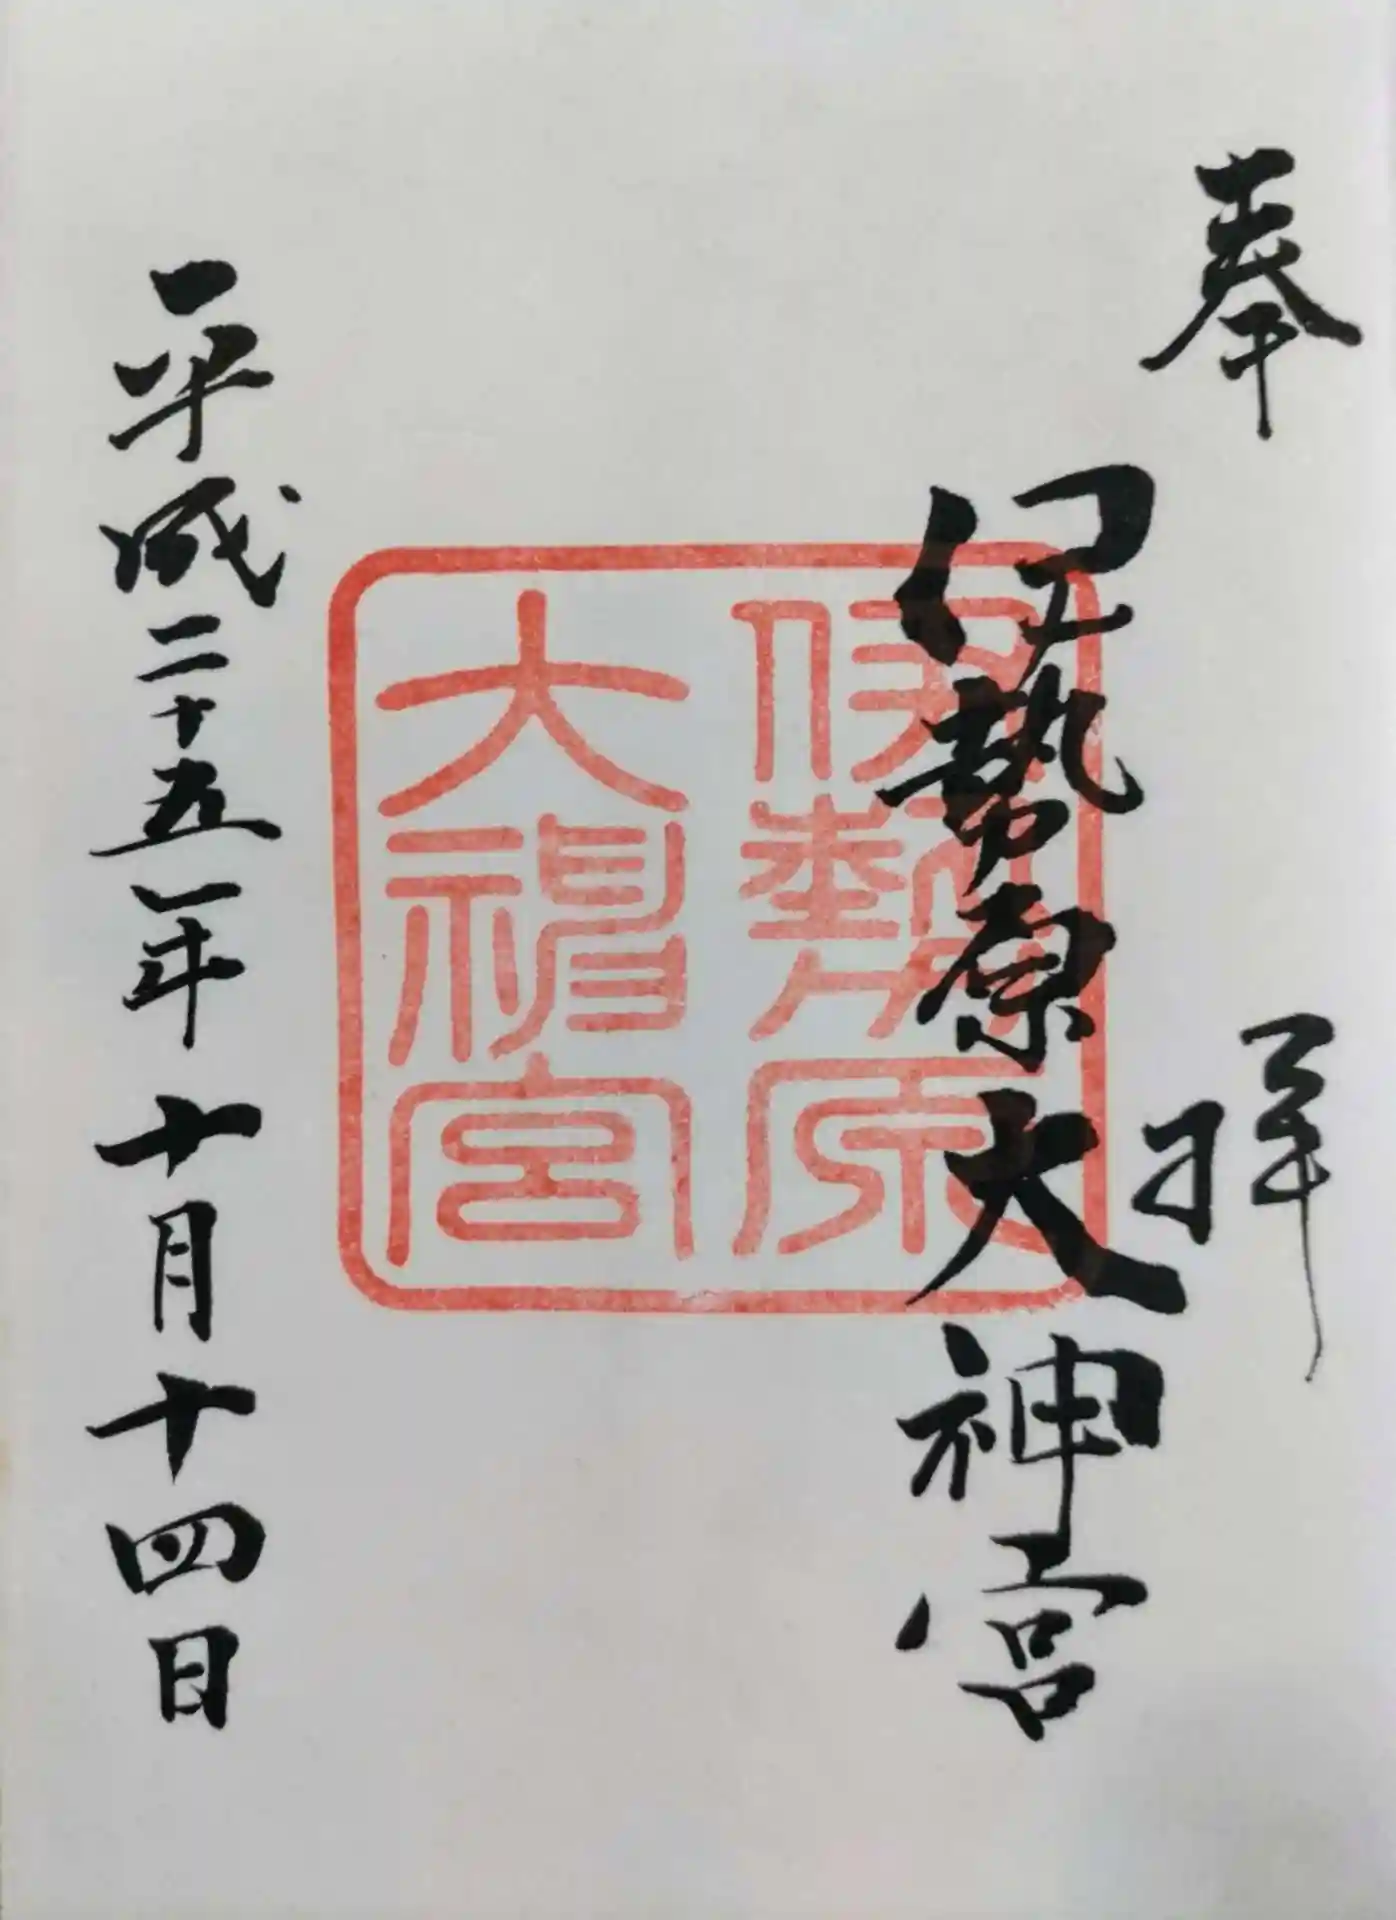 奉拝
伊勢原大神宮
伊勢原
大神宮
平成二十五年十月十四日